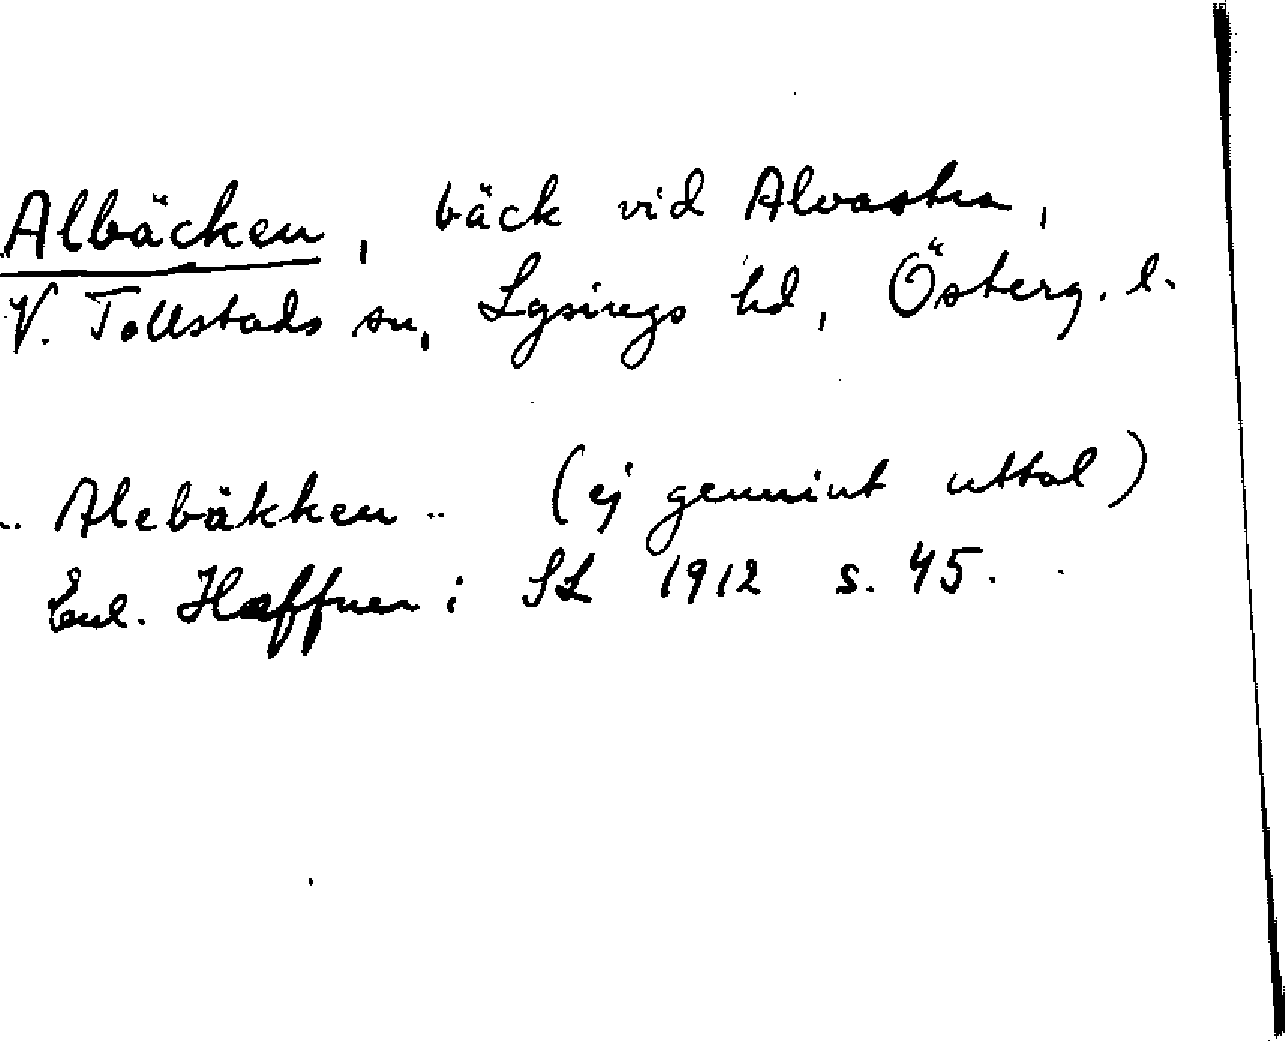 Albäcken, bäck vid Alvastra,
V. Tollstads sn, Lysings hd, Österg. l.
"Alebäkken" (ej genuint uttal)
Enl. Haffner i SL 1912 s. 45.